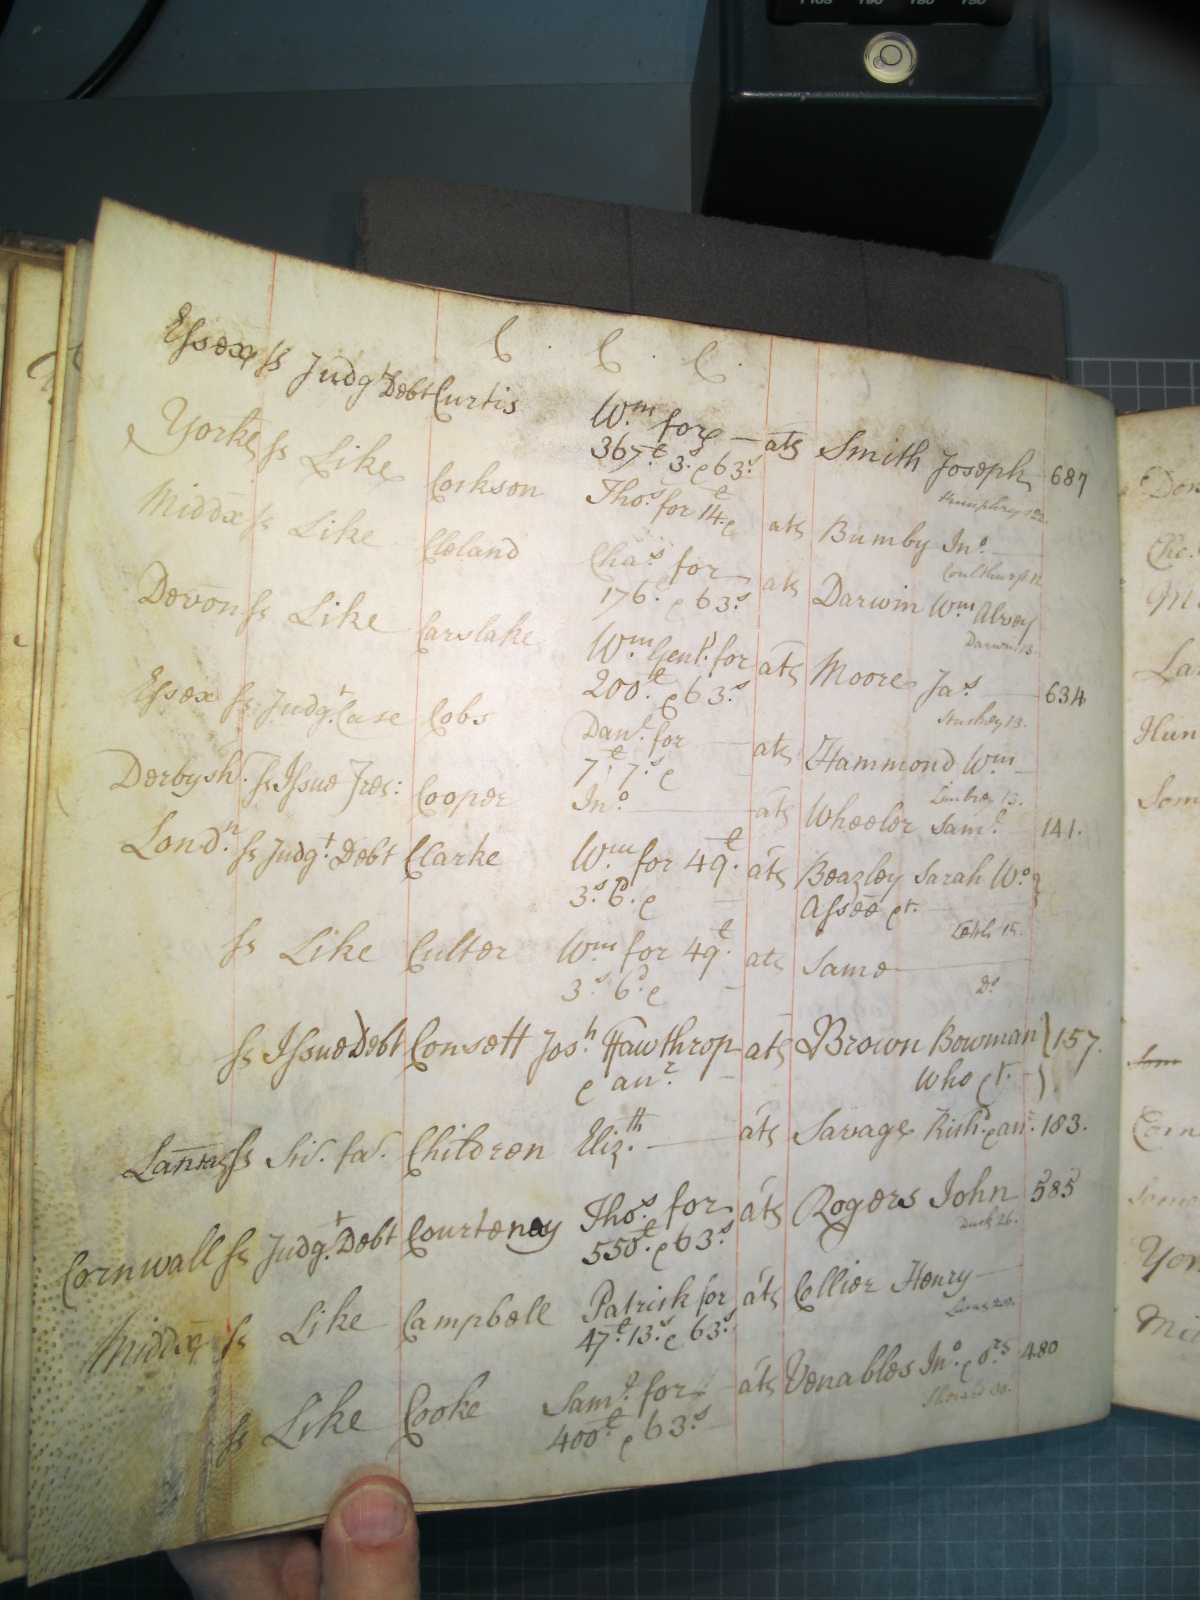 C . C . C .
Essex ss Judgt Debt Curtis Wm for — ats Smith Joseph 687
367£ 3s e 63s
Humphrys 12.
Yorke ss Like Corkson Thos for 14£ e ats Bumby Jno.
Coulthurst 12
Middx ss Like Cleland Chas for ats Darwin Wm Alvey
176£ e 63s
Darwin 13.
Devon ss Like Carslake Wm Gent. for ats Moore Jas 634
200£ e 63s
Stuckey 13.
Essex ss Judgt. Case Cobs Danl. for ats Hammond Wm
7£ 7s e
Limbrey 13.
Derbysh. ss Issue Tres: Cooper Jno. ats Wheeler Saml. 141.
Londn. ss Judgt. Debt Clarke Wm for 49£. ats Beazley Sarah Wo.
3s. 6d. e Assee qt.
15.
ss Like Culter Wm for 49£. ats Same
3s. 6d. e
Do.
ss Issue Debt Consett Josh. Hawthrop ats Brown Bowman } 157.
e anr. Who qt.
ss Sci. fa. Children Eliz.th ats Savage Richd. e anr. 183.
Cornwall ss Judgt. Debt Courtenay Thos. for ats Rogers John 585
550£. e 63s
26.
Middx ss Like Campbell Patrick for ats Collier Henry
47£. 13s. e 63s
Lucas
ss Like Cooke Saml. for ats Venables Jno. e ors 480
400£. e 63s
Sherard 30.
Lan
Hun
Som
Corn
Same
Yor
Mid